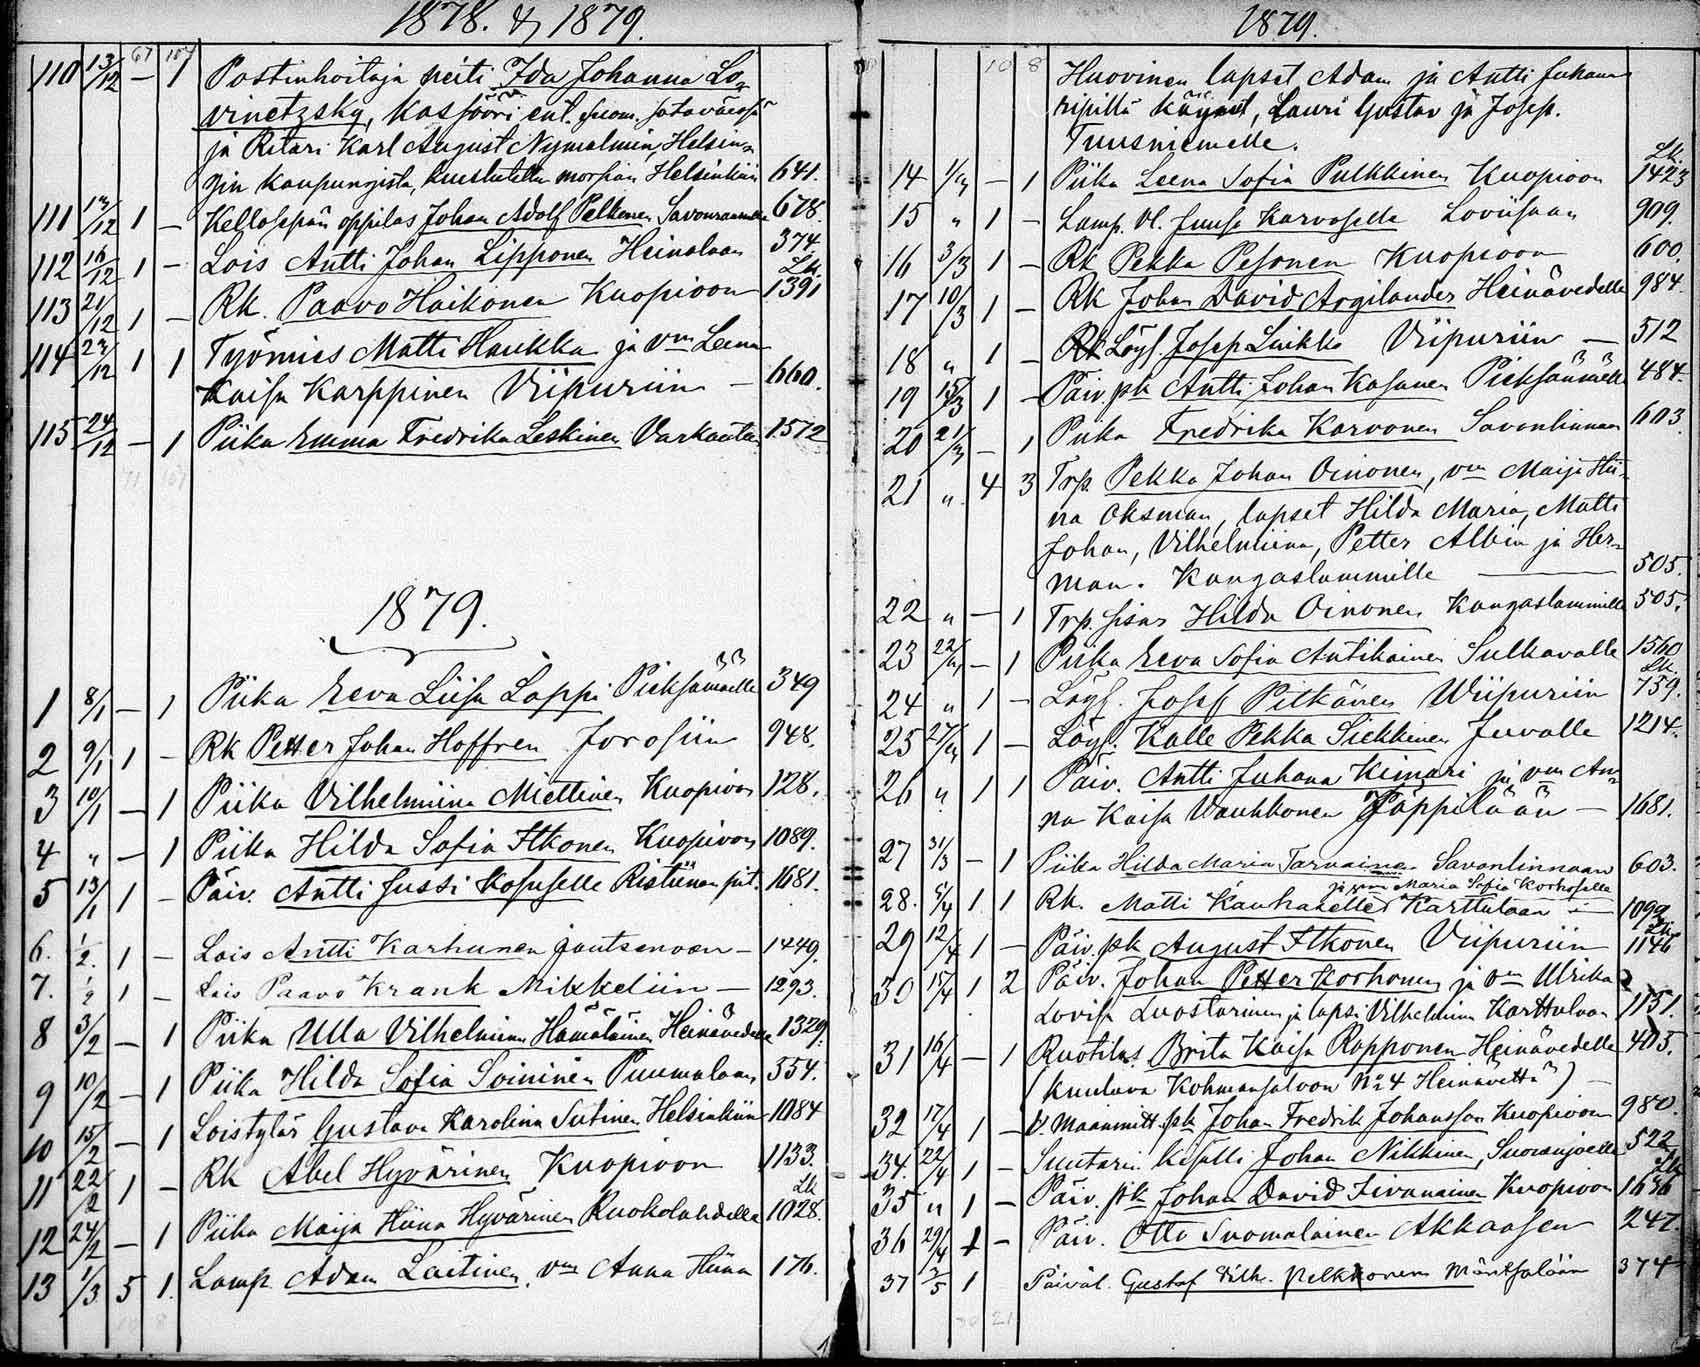 1878. & 1879.
110 13/12 — 1 Postinhoitaja neiti Ida Johanna Lo-
vinetzsky, Kasööri ent. Suom. sotaväessä
ja Ritari Karl August Nymalmin, Helsin-
gin kaupungista, kuulutettu morsian Helsinkiin 641.
111 13/12 1 — Kellosepän oppilas Johan Adolf Pelkonen Savonrannalle 678.
112 16/12 1 — Lois Antti Johan Lipponen Heinolaan 374.
Lk.
113 21/12 1 — Rk. Paavo Haikonen Kuopioon 1391
114 23/12 1 1 Työmies Matti Haukka ja vm Leena
Kaisa Karppinen Viipuriin — 660.
115 24/12 — 1 Piika Emma Fredrika Leskinen Varkauteen 1512
1879.
1 8/1 — 1 Piika Eeva Liisa Lappi Pieksämäelle 349
2 9/1 1 — Rk Petter Johan Hoffren Joroisiin 948.
3 10/1 — 1 Piika Vilhelmiina Miettinen Kuopioon 128.
4 " — 1 Piika Hilda Sofia Itkonen Kuopioon 1089.
5 13/1 1 — Päiv. Antti Jussi Kosuselle Ristiinan pit. 1681.
6. 1/2. 1 — Lois Antti Karhunen Joutsenoon — 1449.
7. 1/2 1 — Lois Paavo Krank Mikkeliin — 1293.
8 3/2 — 1 Piika Ulla Vilhelmiina Hämäläinen Heinävedelle 1329.
9 10/2 — 1 Piika Hilda Sofia Soininen Puumalaan 554.
10 15/2 — 1 Loistytär Gustava Karolina Sutinen Helsinkiin 1084
11 22/2 1 — Rk Abel Hyvärinen Kuopioon 1133.
Lk
12 24/2 — 1 Piika Maija Hiina Hyvärinen Ruokolahdelle 1028.
13 1/3 5 1. Lamp. Adam Laitinen, vm Anna Hiina 176.
1879.
Huovinen lapset Adam ja Antti Juhana
ripillä käyneet, Lauri Gustav ja Josep.
Tuusniemelle.
Lk.
14 1/3 — 1 Piika Leena Sofia Pulkkinen Kuopioon 1423
15 " 1 — Lamp. vl. Juuso Karvoselle Loviisaan 909.
16 3/3 1 — Rk Pekka Pesonen Kuopioon 600.
17 10/3 1 — Rk Johan David Argilander Heinävedelle 984.
18 " 1 — Löysl. Josep Luikko Viipuriin — 512
19 15/3 1 — Päiv. pk Antti Johan Kasanen Pieksämäelle 484.
20 21/3 — 1 Piika Fredrika Karvonen Savonlinnaan 603.
21 " 4 3 Trp. Pekka Johan Oinonen, vm Maija Hii-
na Oksman, lapset Hilda Maria, Matti
Johan, Vilhelmiina, Petter Albin ja Her-
man. Kangaslammille 505.
22 " — 1 Trp. sisar Hilda Oinonen Kangaslammille 505.
23 22/3 — 1 Piika Eeva Sofia Antikainen Sulkavalle 1560
Lk.
24 " 1 — Löysl. Josef Pitkänen Wiipuriin 759.
25 27/3 1 — Löysl. Kalle Pekka Siekkinen Juvalle 1214.
26 " 1 1 Päiv. Antti Juhana Kimari ja vm An-
na Kaisa Vauhkonen Jäppilään — 1681.
27 31/3 — 1 Piika Hilda Maria Tarvainen Savonlinnaan 603.
ja vm Maria Sofia Korhoselle
28. 5/4 1 1 Rk. Matti Kauhaselle Karttulaan — 1092
Lk.
29 12/4 1 — Päiv. pk August Itkonen Viipuriin 1146
30 15/4 1 2 Päiv. Johan Petter Korhonen ja vm Ulrika
Lovisa Luostarinen ja lapsi Vilhelmiina Karttulaan 1151.
31 16/4 — 1 Ruotilas Brita Kaisa Ropponen Heinävedelle 405.
(kuuluva Kohmansaloon No 4 Heinävettä)
32 17/4 1 — v. Maanmitt. pk Johan Fredrik Johansson Kuopioon 980.
34. 22/4 1 — Suutarin kisälli Johan Nikkinen, Suonenjoelle 522
Lk
35 " 1 — Päiv. pk Johan David Iivanainen Kuopioon 1636
36 29/4 1 — Päiv. Otto Suomalainen Akkaasen 247.
37 2/5 1 Päiväl. Gustaf Vilh. Pelkkonen Mäntsälään 374